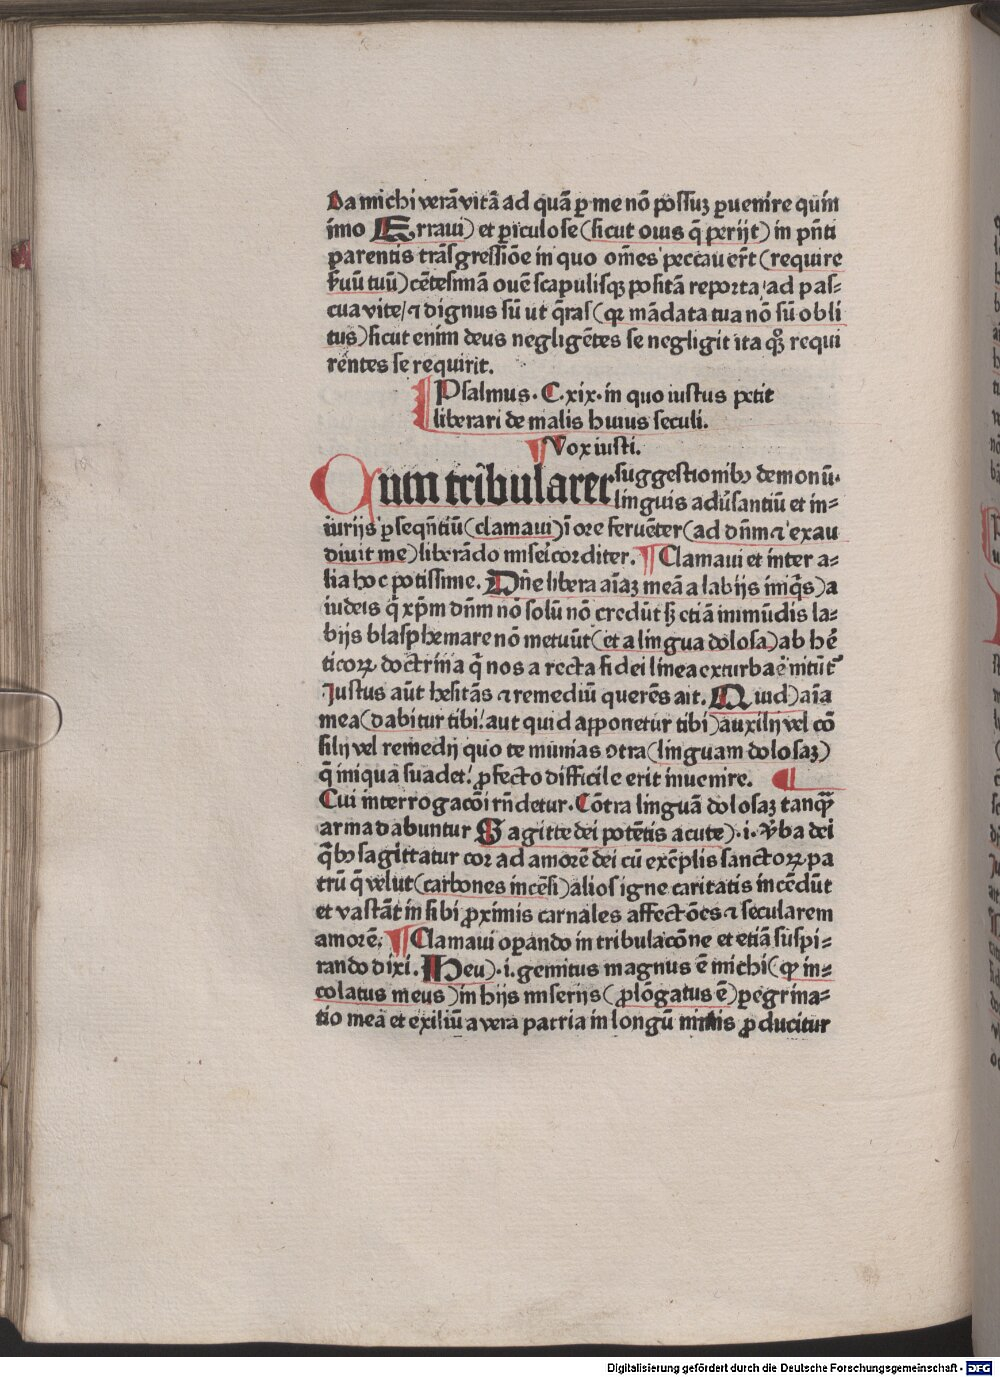 Da michi verā vitā ad quā ꝑ me nō possuꝫ ꝑuenire quin
imo Erraui) et ꝑiculose (sicut ouis q̄ perijt) in pn̄ti
parentis trāsgressiōe in quo om̄es peccauer̄t (require
ẜuū tuū) cētesimā ouē scapulisqꝫ positā reporta/ad pas⸗
cua vite/⁊ dignus sū ut q̄ras (qꝛ mādata tua nō sū obli
tus) sicut enim deus negligētes se negligit ita qͦꝫ requi
rentes se requirit.
Psalmus. C.xix. in quo iustus petit
liberari de malis huius seculi.
Vox iusti.
Cum tribularer suggestionibꝫ demonū.
linguis adūsantiū et in⸗
iurijs ꝑseqn̄tiū (clamaui) ī ore feruēter (ad dn̄m ⁊ exau
diuit me) liberādo misēicorditer. Clamaui et inter a⸗
lia hoc potissime. Dn̄e libera aīaꝫ meā a labijs iniq̄s) a
iudeis q̄ xp̄m dn̄m nō solū nō credūt sꝫ etiā inmūdis la⸗
bijs blasphemare nō metuūt (et a lingua dolosa) ab hē
ticoꝝ doctrina q̄ nos a recta fidei linea exturbaē nitūt᷑
Iustus aūt hesitās ⁊ remediū querēs ait. Quid) aīa
mea (dabitur tibi/ aut quid apponetur tibi) auxilij vel cō
silij vel remedij quo te munias ↄtra (linguam dolosaꝫ)
q̄ iniqua suadet/ ꝓfecto difficile erit inuenire.
Cui interrogacōi rn̄detur. Cōtra linguā dolosaꝫ tanqͣꝫ
arma dabuntur Sagitte dei potētis acute). i. v̄ba dei
q̄bꝫ sagittatur cor ad amorē dei cū exēplis sanctoꝝ pa
trū q̄ velut (carbones incēsi) alios igne caritatis incēdūt
et vastāt in sibi ꝓximis carnales affectōes ⁊ secularem
amorē. Clamaui oꝑando in tribulacōne et etiā suspi⸗
rando dixi. Heu). i. gemitus magnus ē michi (qꝫ in⸗
colatus meus) in hijs miserijs (ꝓlōgatus ē) ꝑegrina⸗
tio mea et exiliū a vera patria in longū nimis ꝓducitur
Digitalisierung gefördert durch die Deutsche Forschungsgemeinschaft - DFG